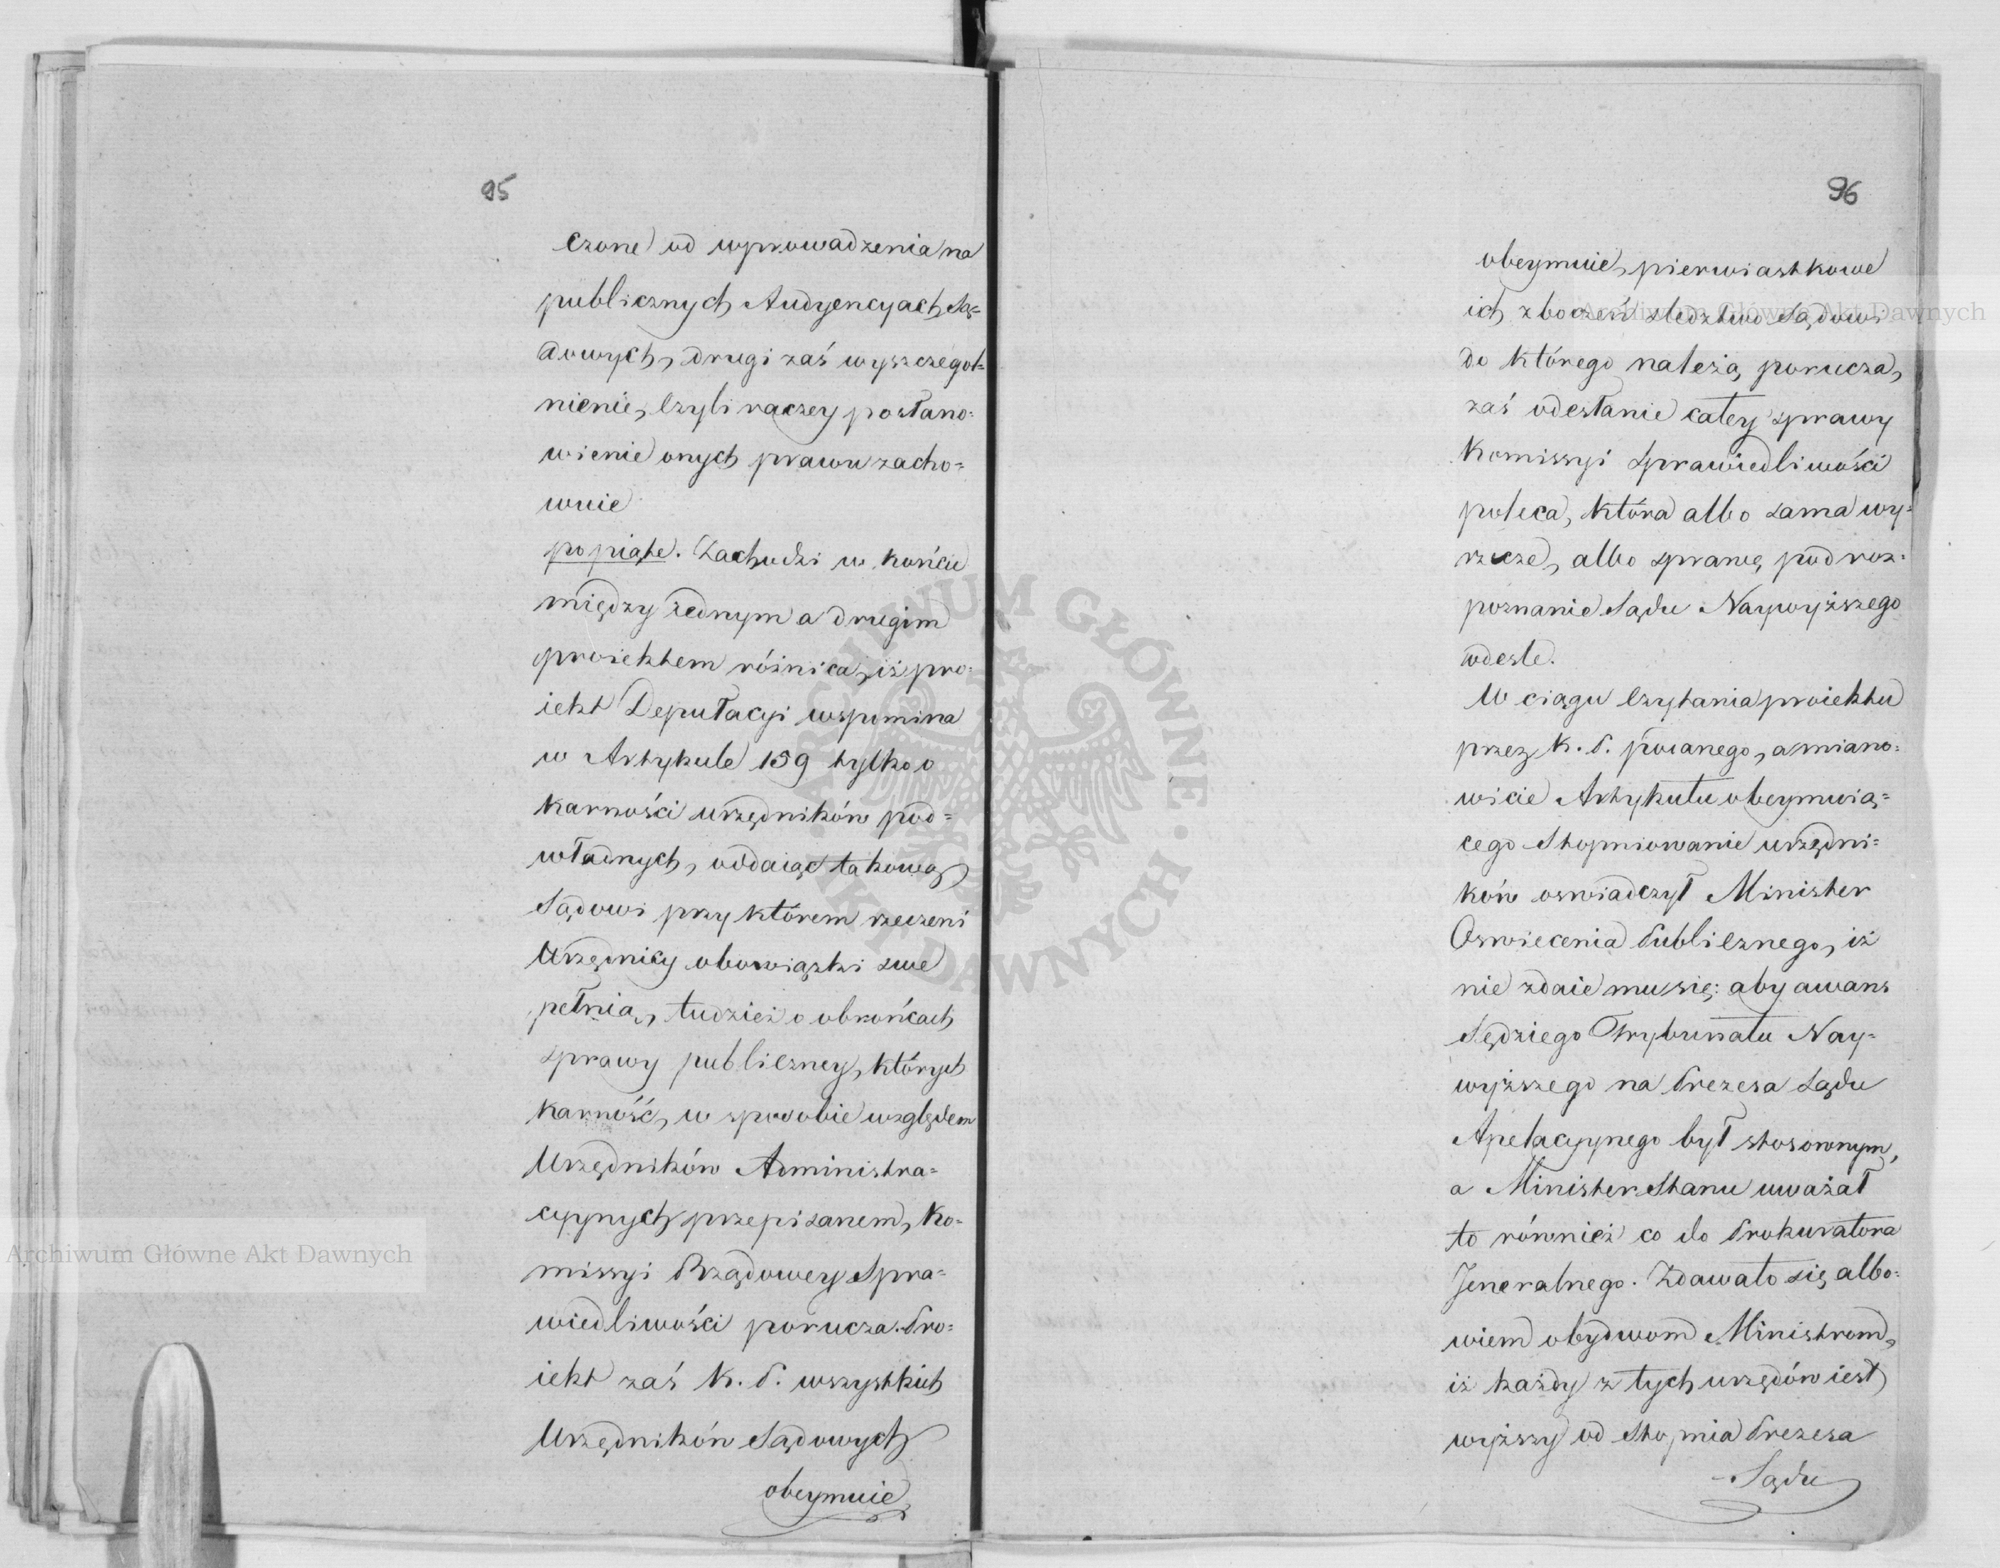 95
czone od wprowadzenia na
publicznych Audyencyach Są=
dowych, drugi zaś wyszczegól=
nienie, czyli raczey postano=
wienie onych prawu zacho=
wuie
po piąte. Zachodzi w końcu
między jednym a drugim
proiektem różnica, iż pro=
iekt Deputacyi wspomina
w Artykule 139 tylko o
karności urzędników pod=
władnych, oddaiąc takową
Sądowi przy którem rzeczeni
Urzędnicy obowiązki swe
pełnią, tudzież o obrońcach
sprawy publiczney, których
karność, w sposobie względem
Urzędników Administra=
cyynych przepisanem, Ko=
missyi Rządowey Spra=
wiedliwości porucza. Pro=
iekt zaś K. P. wszystkich
Urzędników Sądowych
obeymuie
96
obeymuie, pierwiastkowe
ich zboczeń śledztwo Sądowi
do którego należą, porucza,
zaś odesłanie całey sprawy
Komissyi Sprawiedliwości
poleca, która albo sama wy=
rzecze, albo sprawę pod roz=
poznanie Sądu Naywyższego
odeśle.
W ciągu czytania proiektu
przez K. P. podanego, a miano=
wicie Artykułu obeymuią=
cego Stopniowanie urzędni=
ków oświadczył Minister
Oświecenia Publicznego, iż
nie zdaie mu się: aby awans
Sędziego Trybunału Nay=
wyższego na Prezesa Sądu
Apelacyynego był stosownym,
a Minister Stanu uważał
to również co do Prokuratora
Jeneralnego. Zdawało się albo=
wiem obydwom Ministrom,
iż każdy z tych urzędów iest
wyższy od Stopnia Prezesa
Sądu
Archiwum Główne Akt Dawnych
Archiwum Główne Akt Dawnych
ARCHIWUM GŁÓWNE AKT DAWNYCH